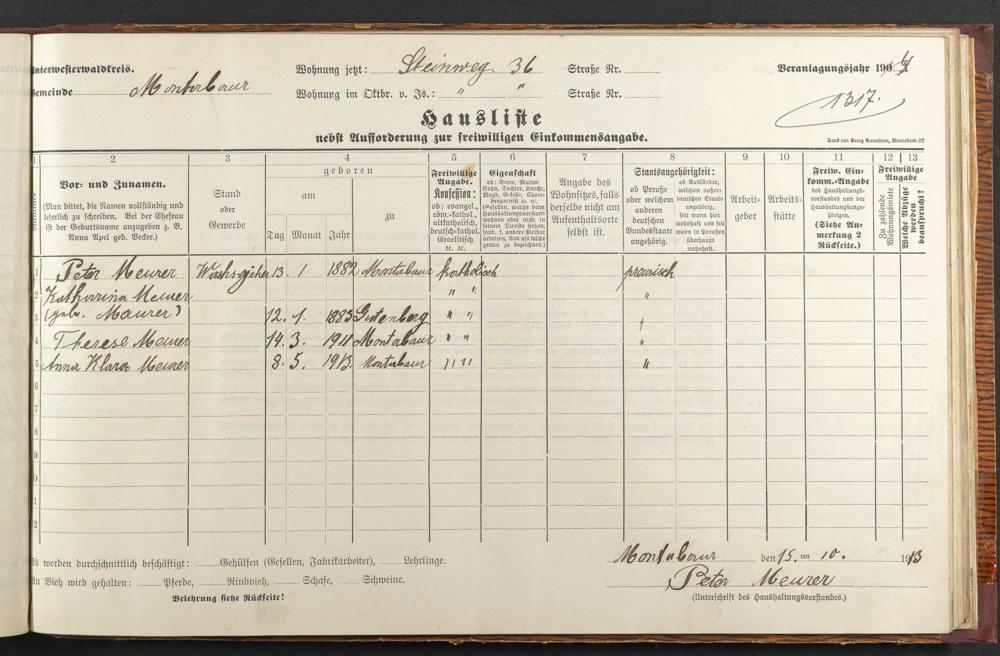 Unterwesterwaldkreis. Wohnung jetzt: Steinweg 36 Straße Nr. Veranlagungsjahr 190
Gemeinde Montabaur Wohnung im Oktbr. v. Js.: " " Straße Nr.
1317.
Hausliste
nebst Aufforderung zur freiwilligen Einkommensangabe.
1 2 3 4 5 6 7 8 9 10 11 12 13
Vor- und Zunamen.
(Man bittet, die Namen vollständig und
leserlich zu schreiben. Bei der Ehefrau
ist der Geburtsname anzugeben z. B.
Anna Apel geb. Becker.)
Stand
oder
Gewerbe
geboren
am
zu
Tag Monat Jahr
Freiwillige
Angabe.
Konfession:
ob: evangel.,
röm.-kathol.,
altkatholisch,
deutsch-kathol.
israelitisch
ec. ec.
Eigenschaft
ob: Vater, Mutter
Sohn, Tochter, Knecht,
Magd, Gesell, Cham-
bregarnist ec. ec.
Angabe des
Wohnsitzes, falls
derselbe nicht am
Aufenthaltsorte
selbst ist.
Staatsangehörigkeit:
ob Preuße
oder welchem
anderen
deutschen
Bundesstaate
angehörig.
ob Ausländer,
welchem außer-
deutschen Staate
angehörig,
seit wann hier
wohnhaft und seit
wann in Preußen
überhaupt
wohnhaft.
Arbeit-
geber
Arbeits-
stätte
Freiw. Ein-
komm.-Angabe
des Haushaltungs-
vorstandes und der
Haushaltungsange-
hörigen.
(Siehe An-
merkung 2
Rückseite.)
Freiwillige
Angabe
Zu zahlende
Wohnungsmiete
Welche Abzüge
werden
beansprucht?
1 Peter Meurer Wachszieher 13. 1 1882 Montabaur katholisch preusisch
2 Katharina Meurer " " "
3 (geb. Maurer) 12. 1. 1883 " "
4 Therese Meurer 14. 3. 1911 Montabaur " " "
5 Anna Klara Meurer 8. 5. 1913 Montabaur " " "
6
7
8
9
0
1
2
Es werden durchschnittlich beschäftigt: Gehülfen (Gesellen, Fabrikarbeiter), Lehrlinge.
An Vieh wird gehalten: Pferde, Rindvieh, Schafe, Schweine.
Belehrung siehe Rückseite!
Montabaur den 15. ten 10. 1913
Peter Meurer
(Unterschrift des Haushaltungsvorstandes.)